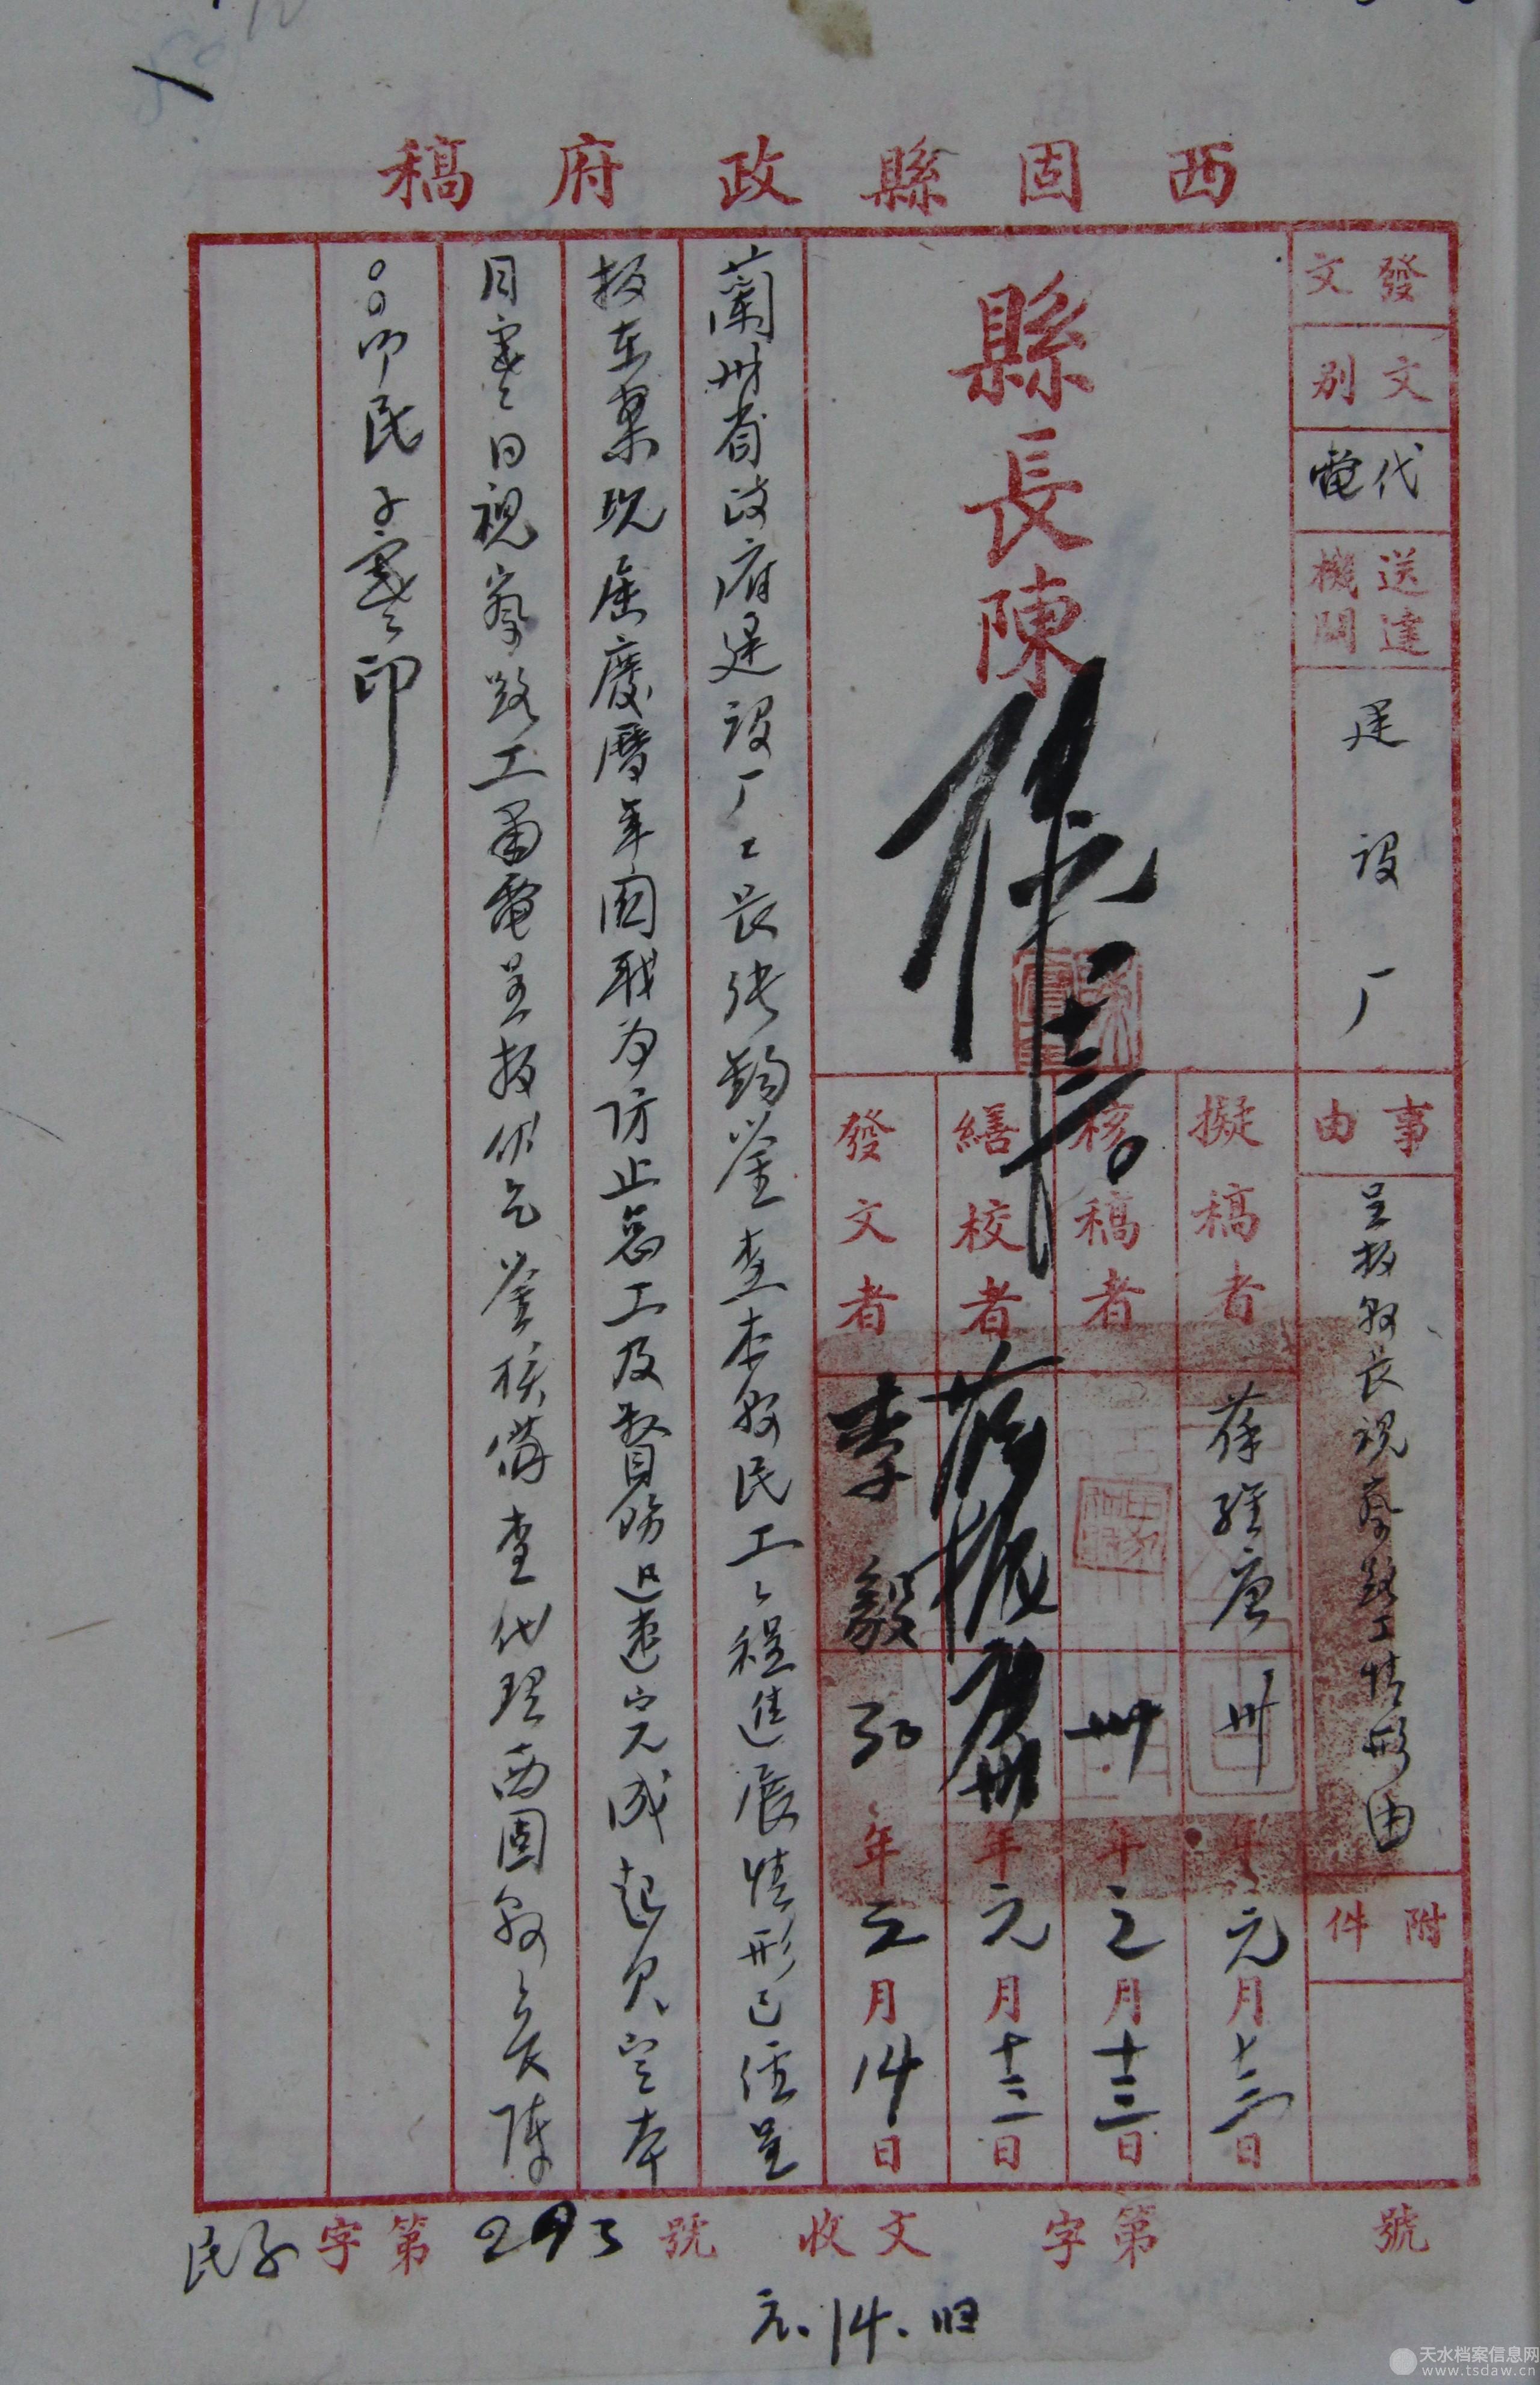 西固縣政府稿
發文
文別
代電
送達機關
建設厂
事由
呈报县长視察路工情形由
附件
縣長陳
擬稿者
卅年元月十三日
核稿者
卅年元月十三日
繕校者
卅年元月十三日
發文者
李毅
30年元月14日
蘭州省政府建設厂厂長张鈞鉴查本县民工工程進展情形已經呈
报在案現届廢曆年関 防止怠工及督飭迅速完成起見定本
月寒日視察路工 電呈报伏乞鉴核備查代理西固县县長陳
○○叩民子寒印
民子字第293號
收文 字第 號
元.14.归
天水档案信息网
www.tsdaw.cn